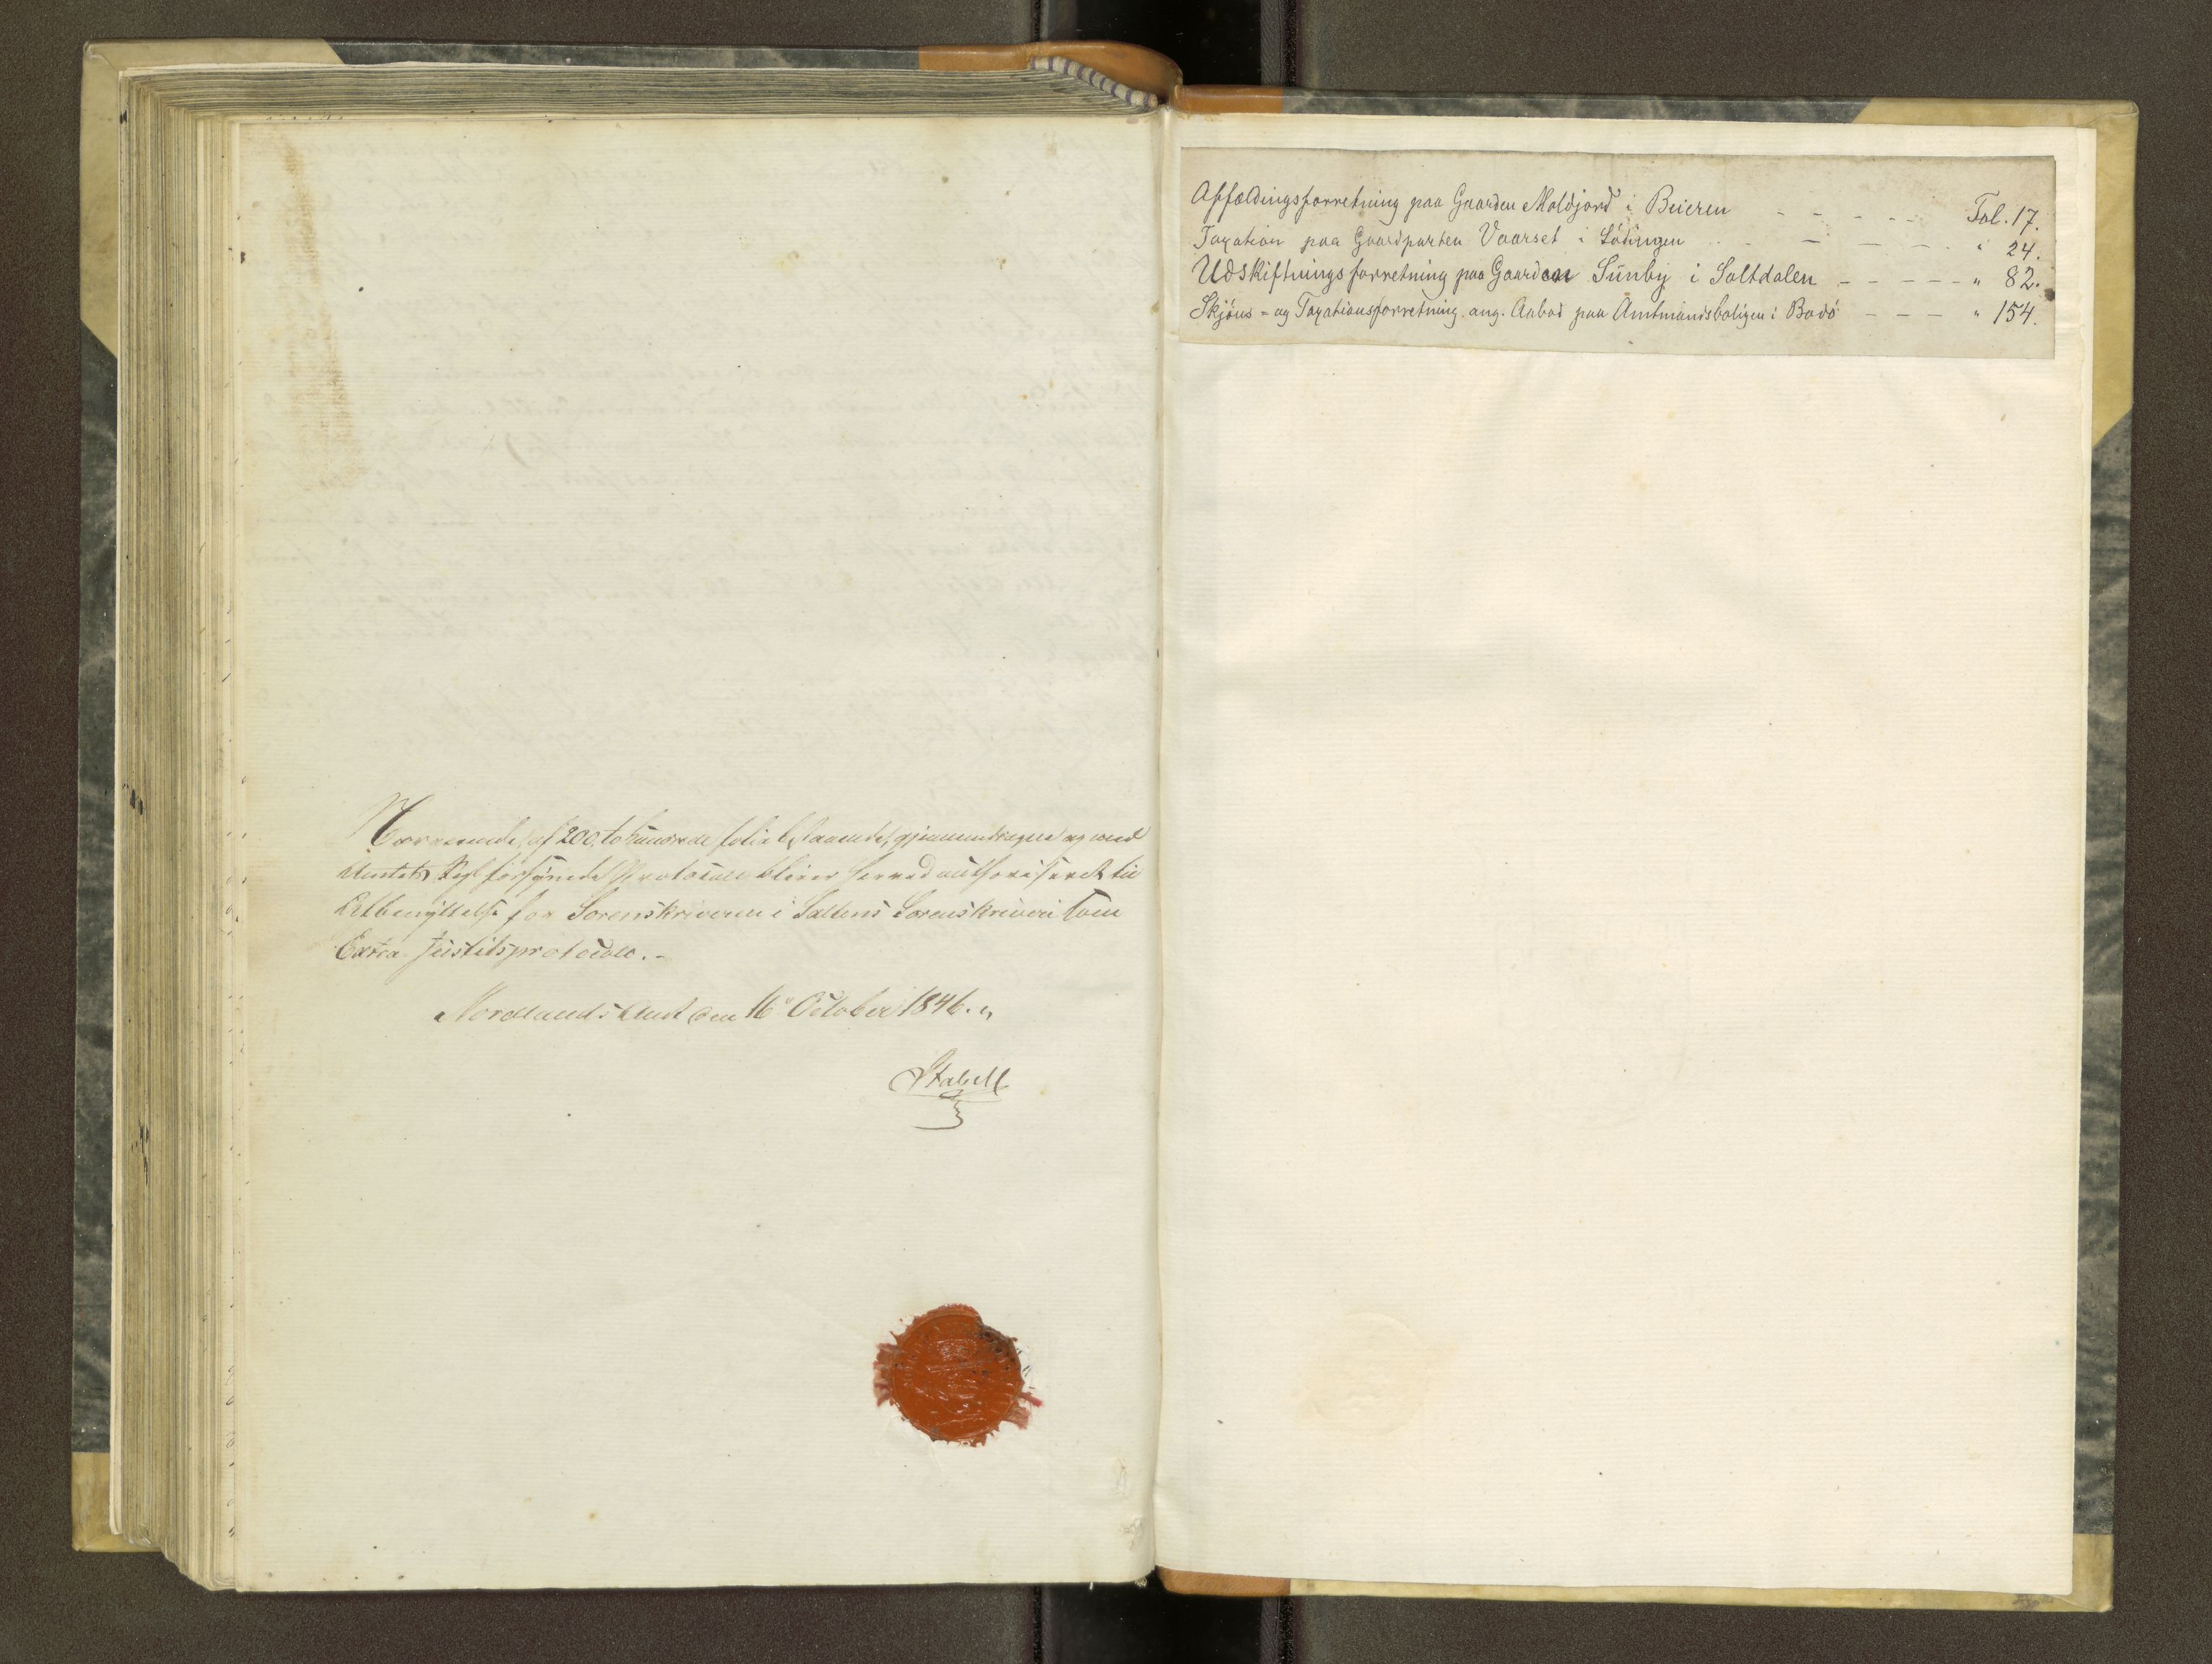 Nærværende, af 200, to hundrede folia bestaaende, gjennemdragne og med
Amtets Segl forsynede Protocoll bliver herved authoriseret til
Afbenyttelse for Sorenskriveren i Saltens Sorenskriveri som
Extra-Justitsprotocoll.-
Nordlands Amt den 16 October 1846.
Stabell
Affældingsforretning paa Gaarden Moldjord i Beieren - - - - - Fol. 17.
Taxation paa Gaardparten Vaarset i Lödingen - - - - " 24.
Udskiftningsforretning paa Gaarden Sunby i Saltdalen - - - - - " 82.
Skjöns= og Taxationsforretning ang. Aabod paa Amtmandsboligen i Bodö - - - " 154.